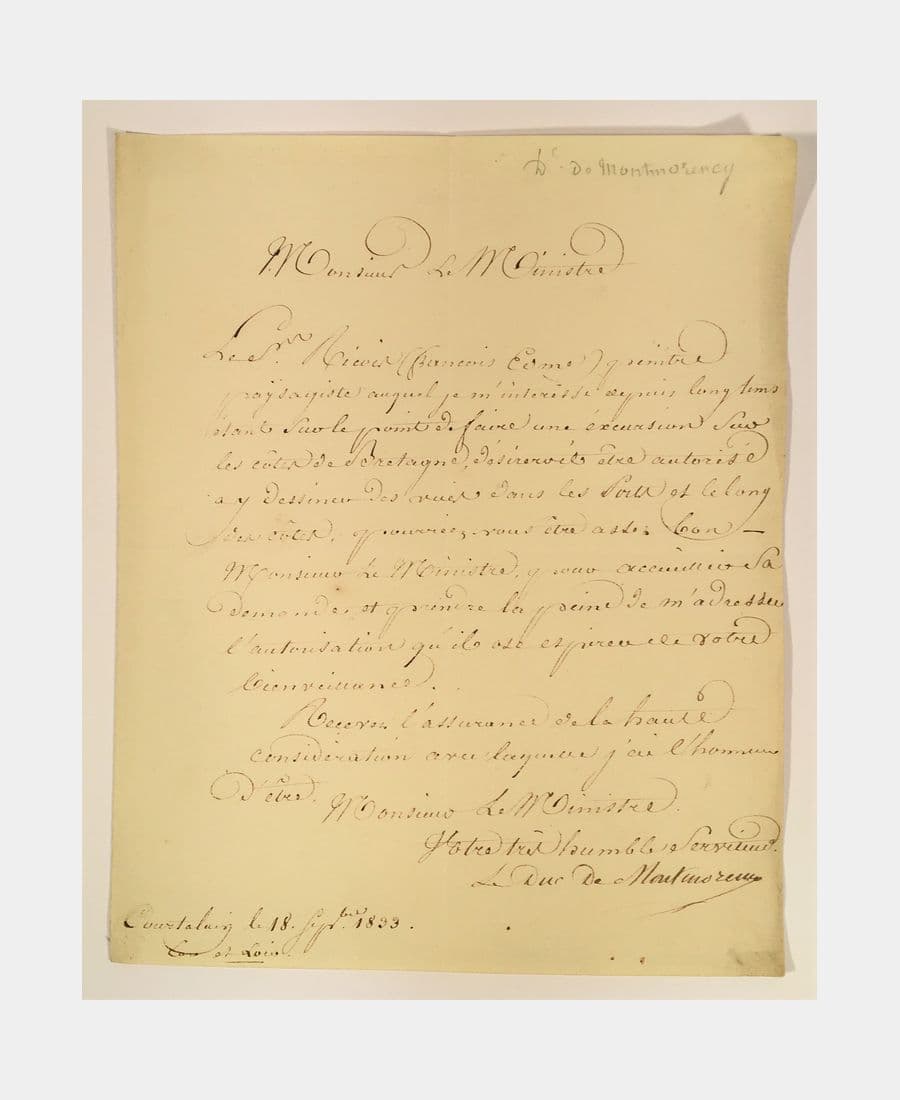 Dc. De Montmorency
Monsieur Le Ministre
Le Sr. Ricois (francois Edme) peintre
paÿsagiste auquel je m'intéresse depuis longtems
étant Sur le point de faire une éxcursion Sur
les côtes de Bretagne, désireroit être autorisé
a y dessiner des vues dans les Ports et le long
des côtes, pourriez vous être assez bon –
Monsieur Le Ministre, pour accueillir Sa
demande, et prendre la peine de m'adresser
l'autorisation qu'il ose esperer de votre
bienveillance.
Recevez l'assurance de la haute
considération avec laquelle j'ai l'honneur
D'être.
Monsieur Le Ministre.
Votre très humble Serviteur.
Le Duc De Montmorency
Courtalain le 18. Septbre. 1833.
Eure et Loir.